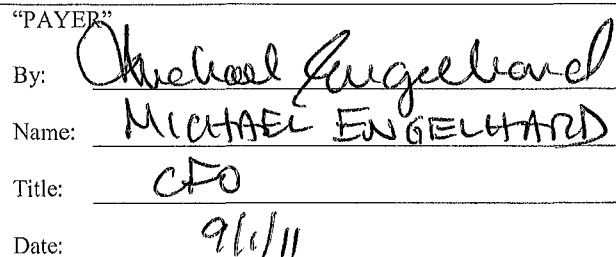 “PAYER”
By: Michael Engelhard
Name: MICHAEL ENGELHARD
Title: CFO
Date: 9/1/11